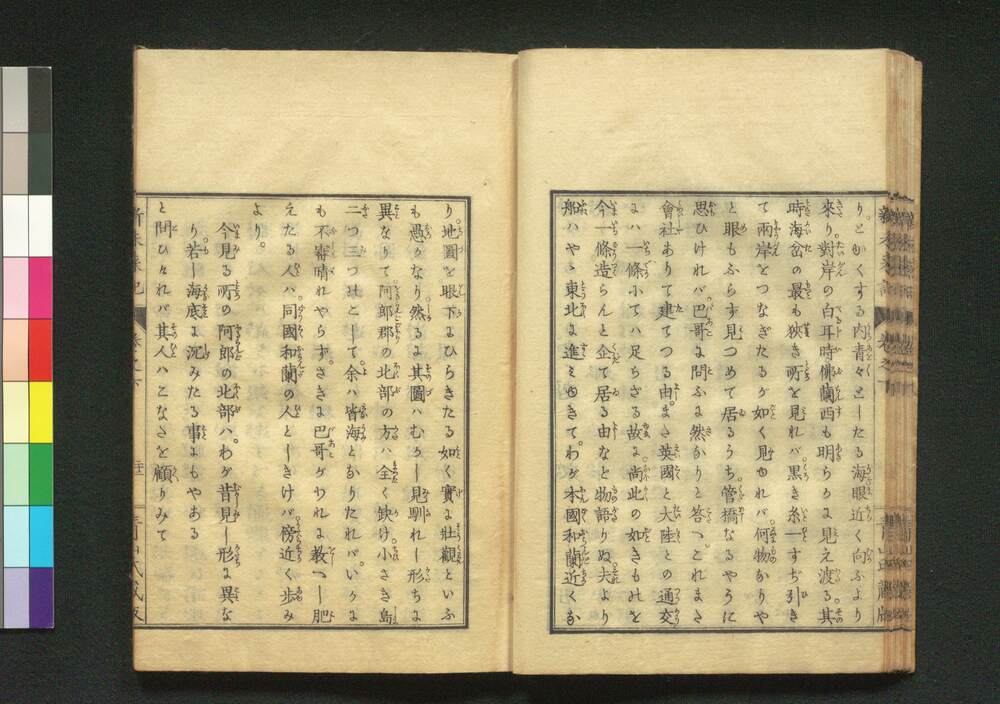 り。とかくする内青々としたる海眼近く向ふより
來り對岸の白耳時佛蘭西も明らかに見え渡る。其
時海岔の最も狹き所を見れバ。黒き糸一すぢ引き
て兩岸をつなぎたるが如く見ゆれバ。何物なりや
と眼もふらず見つめて居るうち。管橋なるやうに
思ひけれバ。巴哥に問ふに然なりと答へつ。これまさ
會社ありて建てつる由。まさ英國と大陸との通交
にハ一條にてハ足らざる故に。尚此の如きものを
今一條造らんと企て居る由など物語りぬ。夫より
船ハやゝ東北に進みゆきて。わが本國和蘭近くな
り。地圖を眼下にひらきたる如く實に壯觀といふ
も愚かなり。然るに其圖ハむかし見馴れし形ちに
異なりて。阿郎郡の北部の方ハ全く欽け。小さき島
二つ三つのこして。余ハ皆海となりたれバ。いかに
も不審晴れやらず。さきに巴哥がわれに教へし肥
えたる人ハ。同國和蘭の人としきけバ。傍近く歩み
より。
今見る所の阿郎の北部ハ。わが昔見し形に異な
り。若し海底に沉みたる事にもやある
と問ひければ其人ハこなたを顧りみて